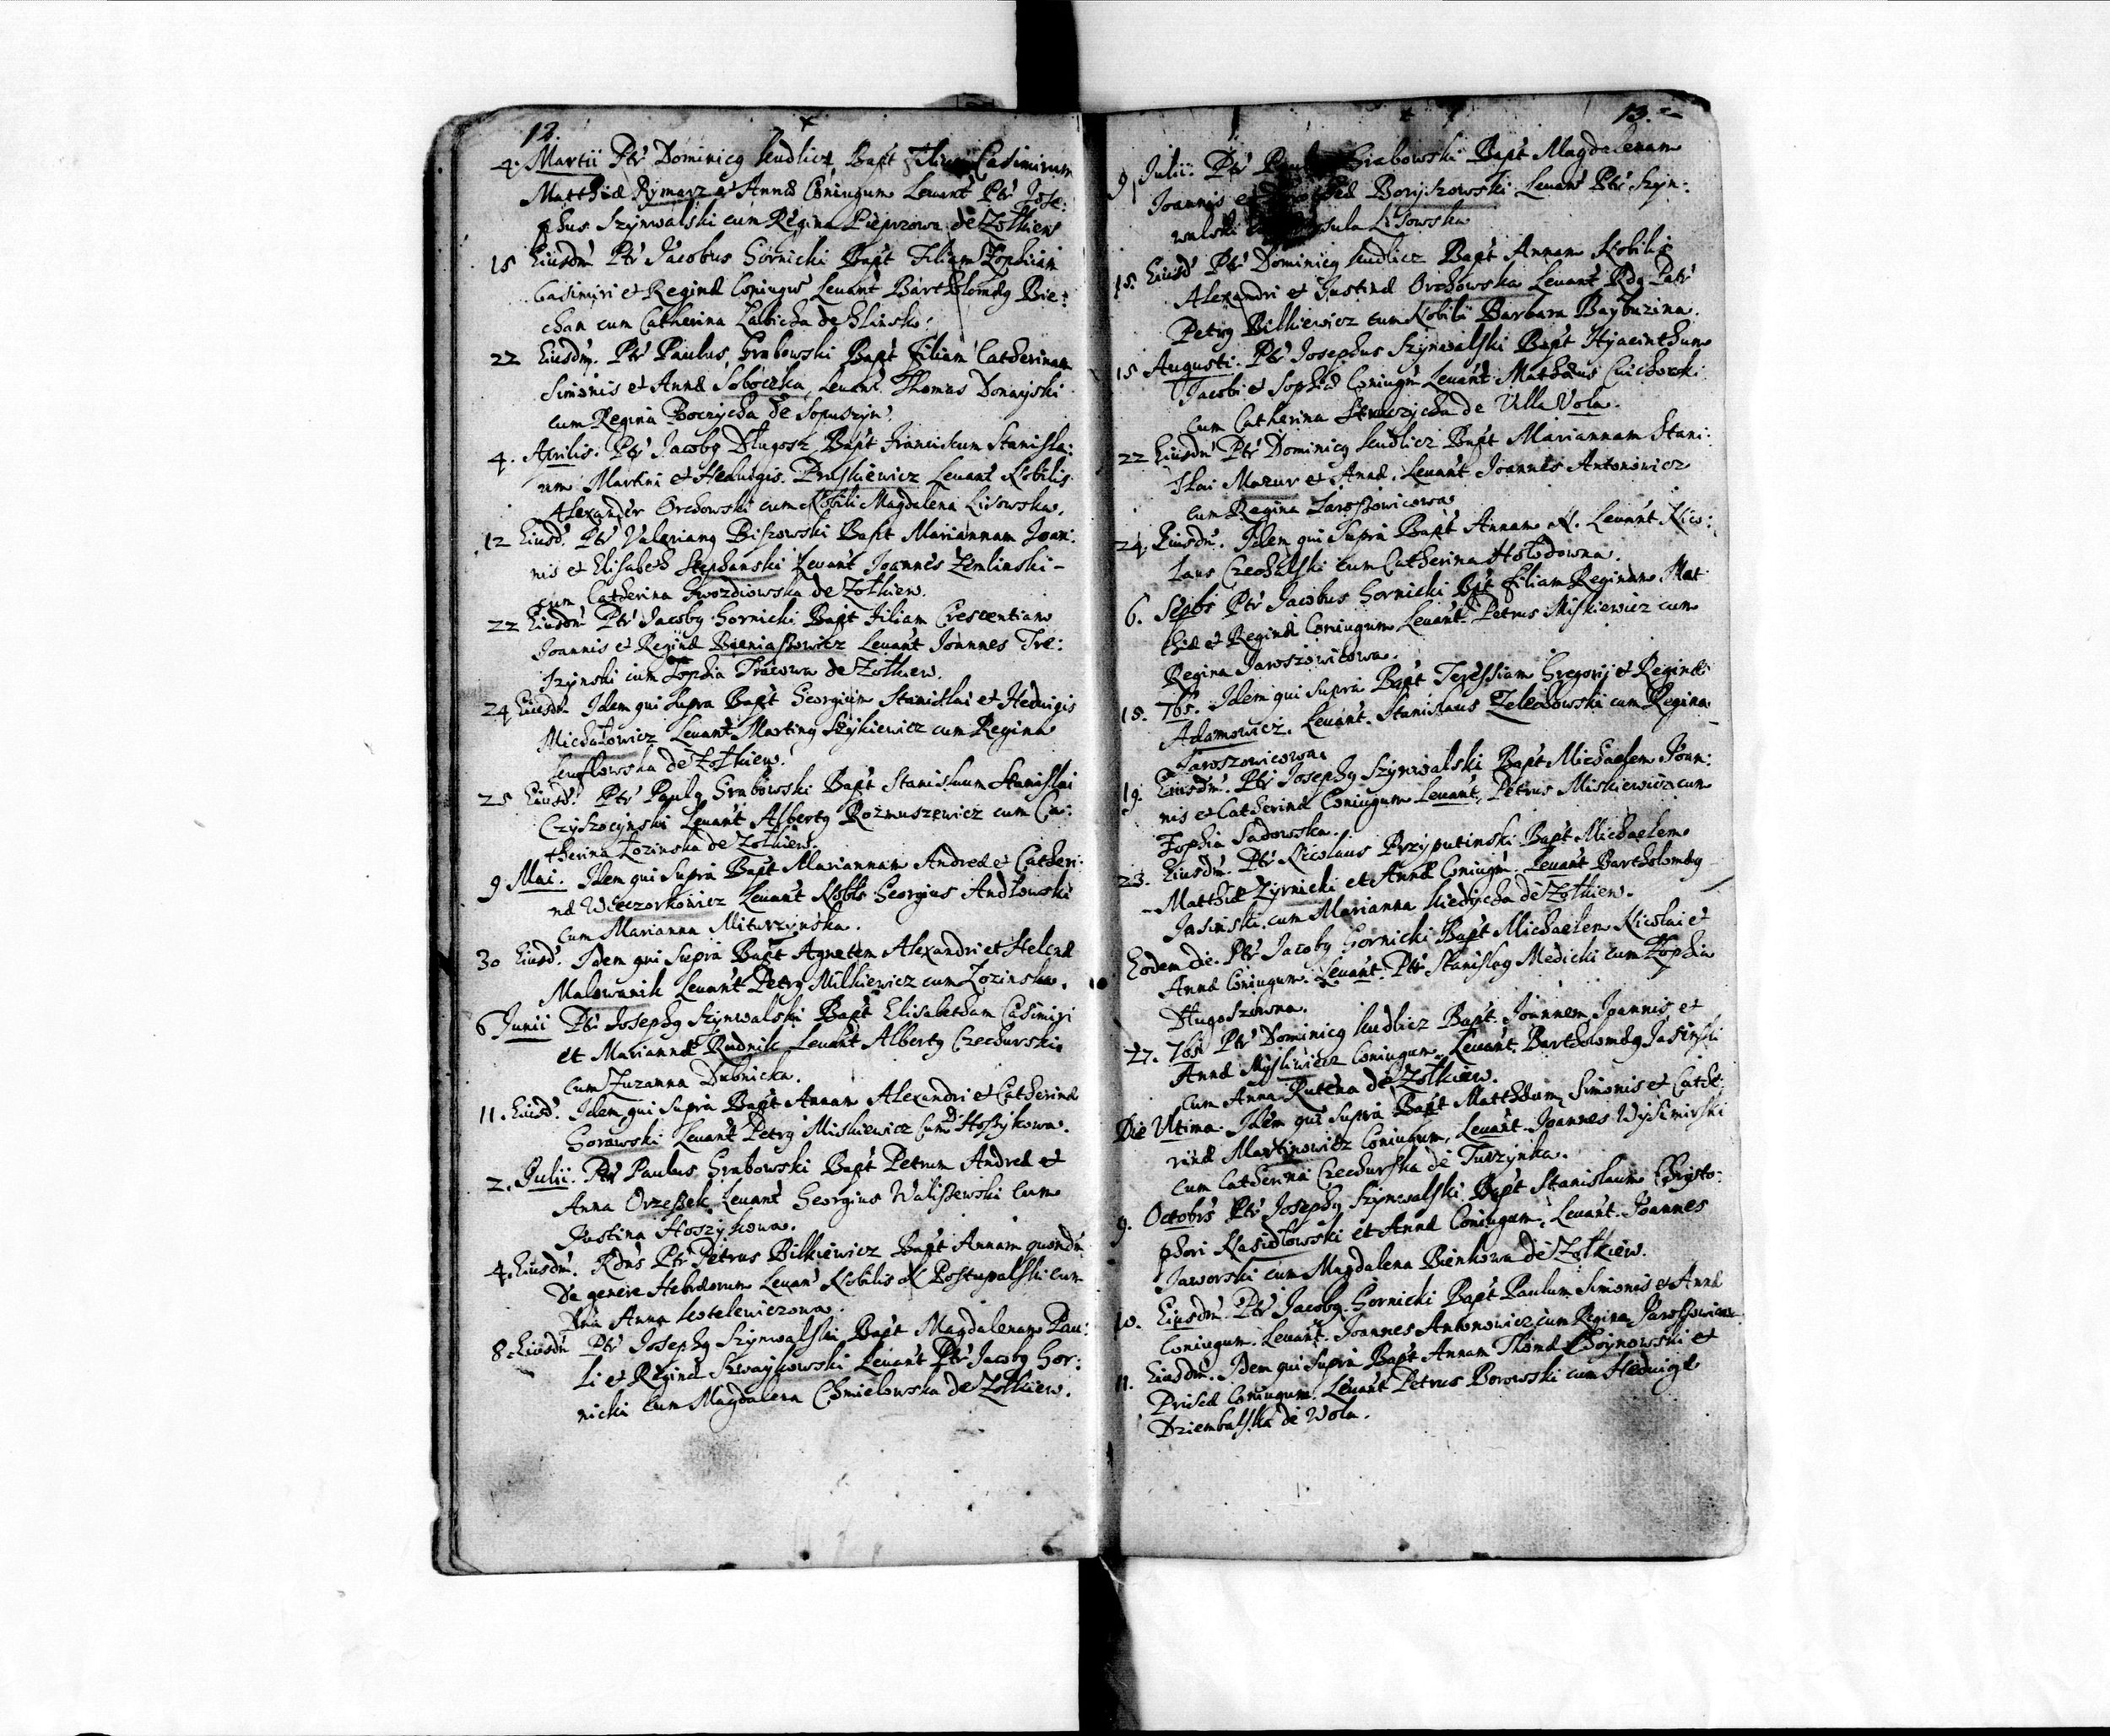 12.
4. Martii Ptr Dominicq Kudlicz Bapt Filium Casimirum
Matthiæ Rymarz et Annæ Coniugum Levant Ptr Jose:
phus Szynwalski cum Regina Pieprzowa de Zołkiew
15 Eiusdm Ptr Jacobus Gornicki Bapt Filiam Zophiam
Casimiri et Reginæ Coniugu Levant Bartholomæq Bie:
chan cum Catherina Labicha de Glinsko.
22 Eiusdm. Ptr Paulus Grabowski Bapt Filiam Catherinam
Simonis et Annæ Soboczka, Levant Thomas Donayski
cum Regina de Sopuszyn.
4. Aprilis. Ptr Jacobq Długosz Bapt Franciscum Stanisla:
um Martini et Hedvigis Pruskiewicz Levant Nobilis
Alexander Orchowski cum Nobili Magdalena Lisowska.
12 Eiusd. Ptr Valerianq Biszowski Bapt Mariannam Joan:
nis et Elisabeth Stephanski Levant Joannes Zemlinski -
cum Catherina Gwozdiowska de Zołkiew.
22 Eiusdm Ptr Jacobq Gornicki Bapt Filiam Crescentiam
Joannis et Reginæ Bieniaszowicz Levant Joannes Tre:
szynski cum Zophia Tracowa de Zołkiew.
24 Eiusdm Idem qui supra Bapt Georgium Stanislai et Hedvigis
Michałowicz Levant Martinq Szykiewicz cum Regina
de Zołkiew.
25 Eiusd. Ptr Paulq Grabowski Bapt Stanislaum Stanislai
Czyszocynski Levant Albertq Rozmuszewicz cum Ca:
therina Łozinska de Zołkiew.
9 Mai. Idem qui supra Bapt Mariannam Andreæ et Catheri:
næ Wieczorkowicz Levant Nobls Georgius Andłowski
cum Marianna Miturzynska.
30 Eiusd. Idem qui supra Bapt Agnetem Alexandri et Helenæ
Malowanik Levant Petrq Milkiewicz cum Lozinska.
6 Junii Ptr Josephq Szynwalski Bapt Elisabetham Casimiri
et Mariannæ Rudnik Levant Albertq Czechurski
cum Zuzanna Dubnicka.
11. Eiusd. Idem qui supra Bapt Annam Alexandri et Catherinæ
Gorawski Levant Petrq Miskiewicz cum D Hoszykowa.
2. Julii. Ptr Paulus Grabowski Bapt Petrum Andreæ et
Anna Orzeszek Levant Georgius Waliszewski cum
Justina Hoszykowa.
4. Eiusdm. Rdns Ptr Petrus Bilkiewicz Bapt Annam quondm
de genere Hebræorum Levan Nobilis N Postupalski cum
Dna Anna Kotelewiczowa.
8. Eiusdm Ptr Josephq Szynwalski Bapt Magdalenam Pau:
li et Reginæ Szwaykowski Levant Ptr Jacobq Gor:
nicki cum Magdalena Chmielowska de Zołkiew.
13.
9 Julii: Ptr Grabowski Bapt Magdalenam
Joannis et Boryszowski Levant Ptr Szyn:
walski Lisowska
15. Eiusd Ptr Dominicq Kudlicz Bapt Annam Nobilis
Alexandri et Justinæ Orchowska Levant Rdq Patr
Petrq Bilkiewicz cum Nobili Barbara Baybuzina.
15 Augusti. Ptr Josephus Szynwalski Bapt Hyacinthum
Jacobi et Sophiæ Coniugum Levant Mathæus
cum Catherina de Villa Vola.
22 Eiusdm Ptr Dominicq Kudlicz Bapt Mariannam Stani:
slai Mazur et Annæ. Levant Joannes Antonowicz
cum Regina Jaroszowicowa
24. Eiusdm. Idem qui supra Bapt Annam N. Levant Nico:
laus Czechalski cum Catherina Hołodowna.
6. Sepbs Ptr Jacobus Gornicki Bpt Filiam Reginam Mat
thiæ et Reginæ Coniugum Levant Petrus Miskiewicz cum
Regina Jaroszowicowa.
15. 7bs. Idem qui supra Bapt Teressiam Gregorij et Reginæ
Adamowicz. Levant. Stanislaus Zelechowski cum Regina
Jaroszowicowa.
19. Eiusdm. Ptr Josephq Szynwalski Bapt Michaelem Joan:
nis et Catherinæ Coniugum Levant, Petrus Miskiewicz cum
Zophia Sadowska.
23. Eiusdm. Ptr Nicolaus Przyputinski Bapt Michaelem
Matthiæ Zyrnicki et Annæ Coniugm. Levant Bartholomæq
Jasinski cum Marianna Kiedycha de Zołkiew.
Eodem Die. Ptr Jacobq Gornicki Bapt Michaelem Nicolai et
Annæ Coniugum. Levant. Ptr Stanislaq Medicki cum Zophia
Długoszowna.
27. 7bs Ptr Dominicq Kudlicz Bapt. Joannem Joannis et
Annæ Mysliwiecz Coniugum. Levant. Bartholomæq Jasinski
cum Anna Rutena de Zołkiew.
Die Ultima. Idem qui supra Bapt Matthæum, Simonis et Cathe:
rinæ Martinowicz Coniugum, Levant Joannes Wysimirski
cum Catherina Czechurska de Turzynka.
9. Octobrs Ptr Josephq Szynwalski Bapt Stanislaum Christo:
phori Nasidłowski et Annæ Coniugum. Levant. Joannes
Jaworski cum Magdalena Bienkowa de Zołkiew.
10. Eiusdm. Ptr Jacobq Gornicki Bapt Paulum Simonis et Annæ
Coniugum. Levant. Joannes Antonowicz cum Regina Jaroszowicowa
11. Eiusdm. Idem qui supra Bapt Annam Thomæ Choynowski et
Priscæ Coniugum. Levant Petrus Borowski cum Hedvige
Dziembalska de Wola.